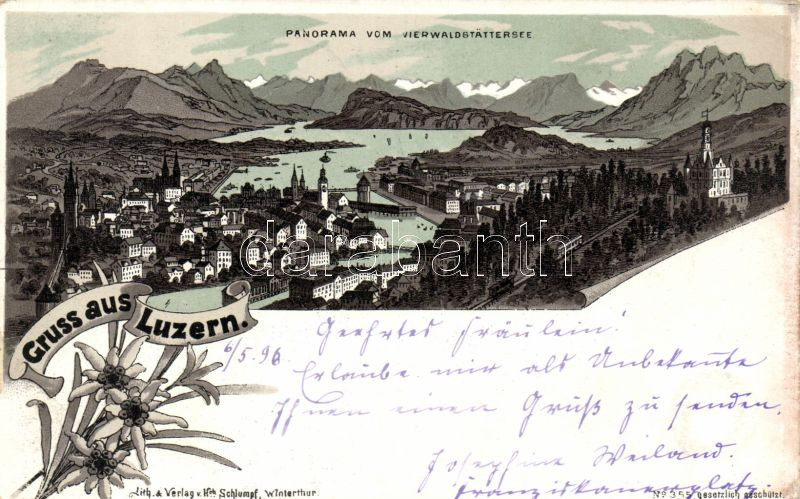 PANORAMA VOM VIERWALDSTÄTTERSEE
darabanth
Gruss aus Luzern.
6/5.96
Geehrtes Fräulein!
Erlaube mir als Unbekante
Ihnen einen Gruß zu senden.
Josephine Weiland.
Franziskanerplatz.
Lith. & Verlag v. Hch Schlumpf, Winterthur.
No 355 gesetzlich geschützt.